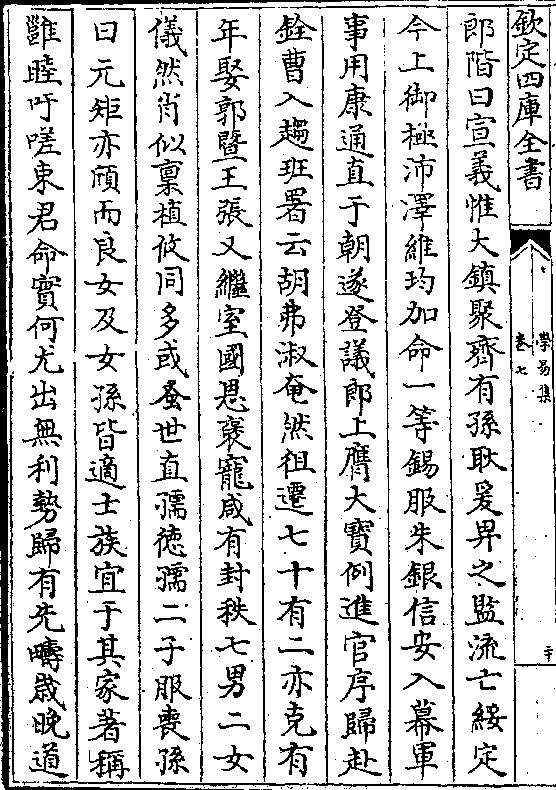 欽定四庫全書
學易集
卷七
二十
郎階曰宣義惟大鎮聚齊有孫耿爰畀之監流亡綏定
今上御極沛澤維均加命一等錫服朱銀信安入幕軍
事用康通直于朝遂登議郎上膺大寶例進官序歸赴
銓曹入趨班署云胡弗淑奄然徂遷七十有二亦克有
年娶郭暨王張又繼室國恩褒寵咸有封秩七男二女
儀然肖似禀植攸同多或蚤世直孺徳孺二子服喪孫
曰元矩亦頎而良女及女孫皆適士族宜于其家著稱
雝睦吁嗟東君命實何尤出無利勢歸有先疇嵗晚道